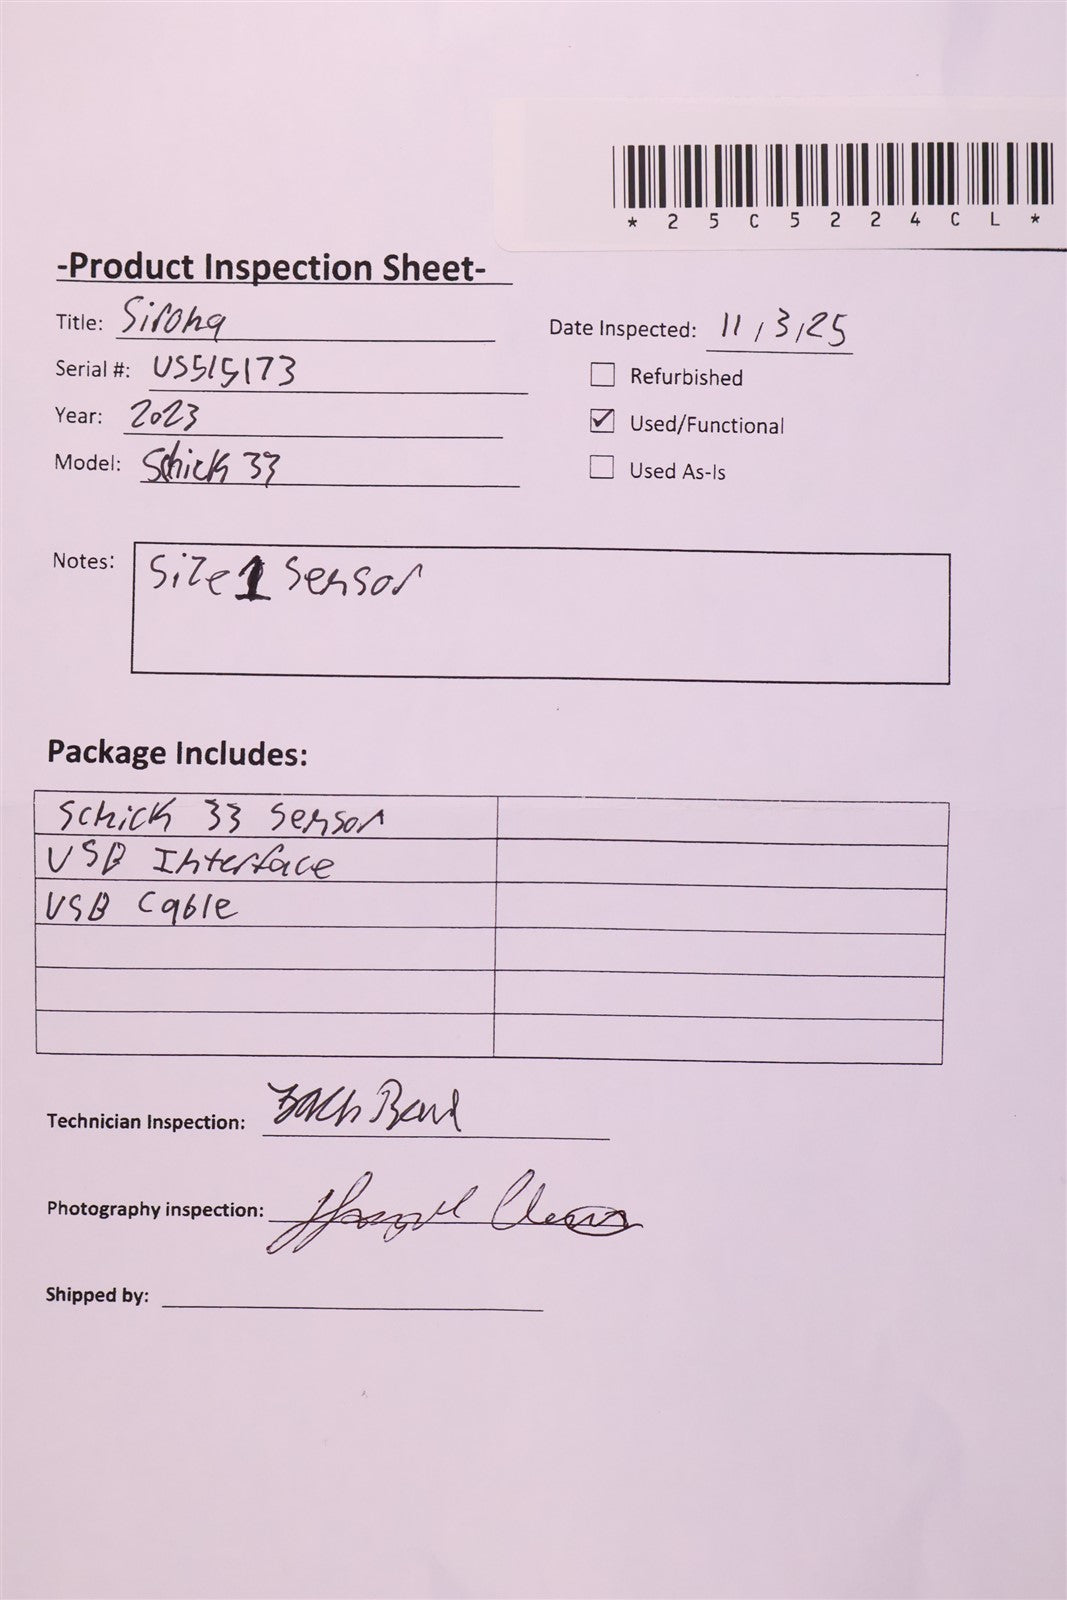 *25C5224CL*
-Product Inspection Sheet-
Title: Sirona
Date Inspected: 11/3/25
Serial #: US515173
Refurbished
Year: 2023
Used/Functional
Model: Schick 33
Used As-Is
Notes: Size 1 Sensor
Package Includes:
Schick 33 Sensor
USB Interface
USB Cable
Technician Inspection: Zach
Photography inspection:
Shipped by: